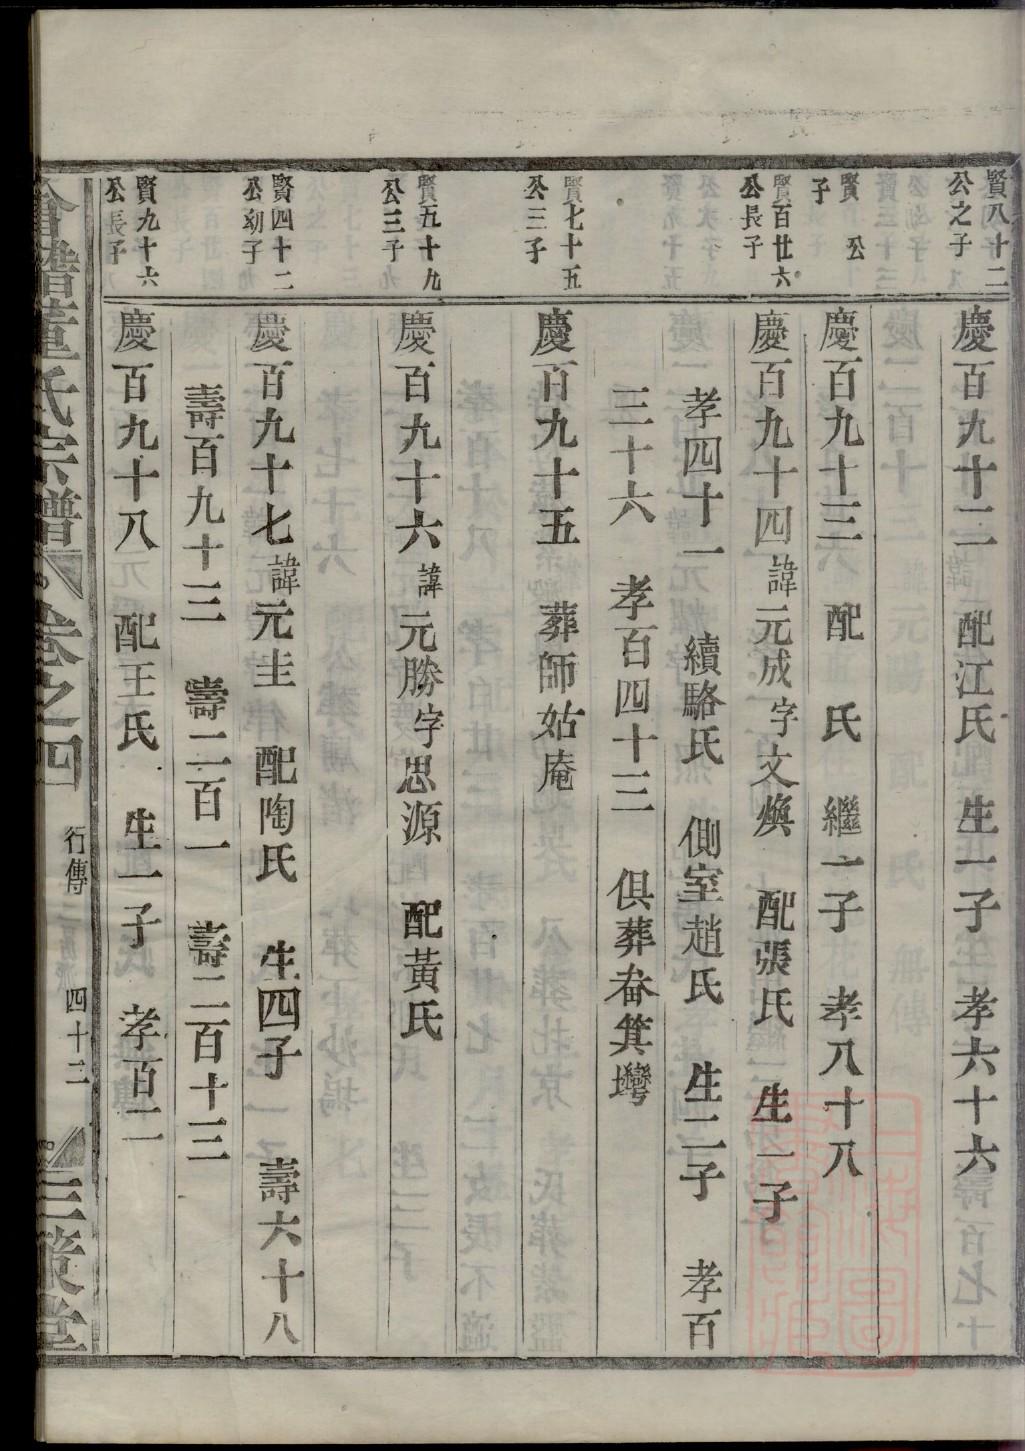 賢八十二
公之子
慶百九十二　配江氏　生一子　孝六十六
賢　公
子
慶百九十三　配　氏　繼一子　孝八十八
賢百廿六
公長子
慶百九十四諱元成字文煥　配張氏　生一子
孝四十一　續駱氏　側室趙氏　生二子　孝百
三十六　孝百四十三　俱葬畚箕壪
賢七十五
公三子
慶百九十五　葬師姑庵
賢五十九
公三子
慶百九十六諱元勝字思源　配黃氏
賢四十二
公幼子
慶百九十七諱元圭　配陶氏　生四子　壽六十八
壽百九十三　壽二百一　壽二百十三
賢九十六
公長子
慶百九十八　配王氏　生一子　孝百二
董氏宗譜　卷之四　行傳　四十二　三策堂